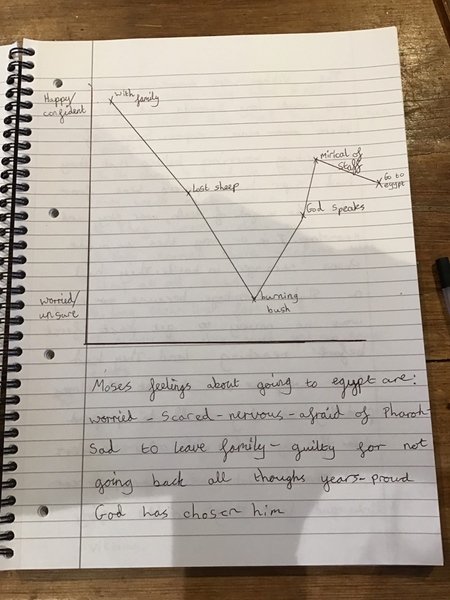 Happy/
confident
with
family
Lost sheep
Mirical of
staff
Go to
egypt
God speaks
worried/
unsure
burning
bush
Moses feelings about going to egypt are:
worried - scared - nervous - afraid of Pharoh
Sad to leave family - guilty for not
going back all thoughs years - proud
God has chosen him